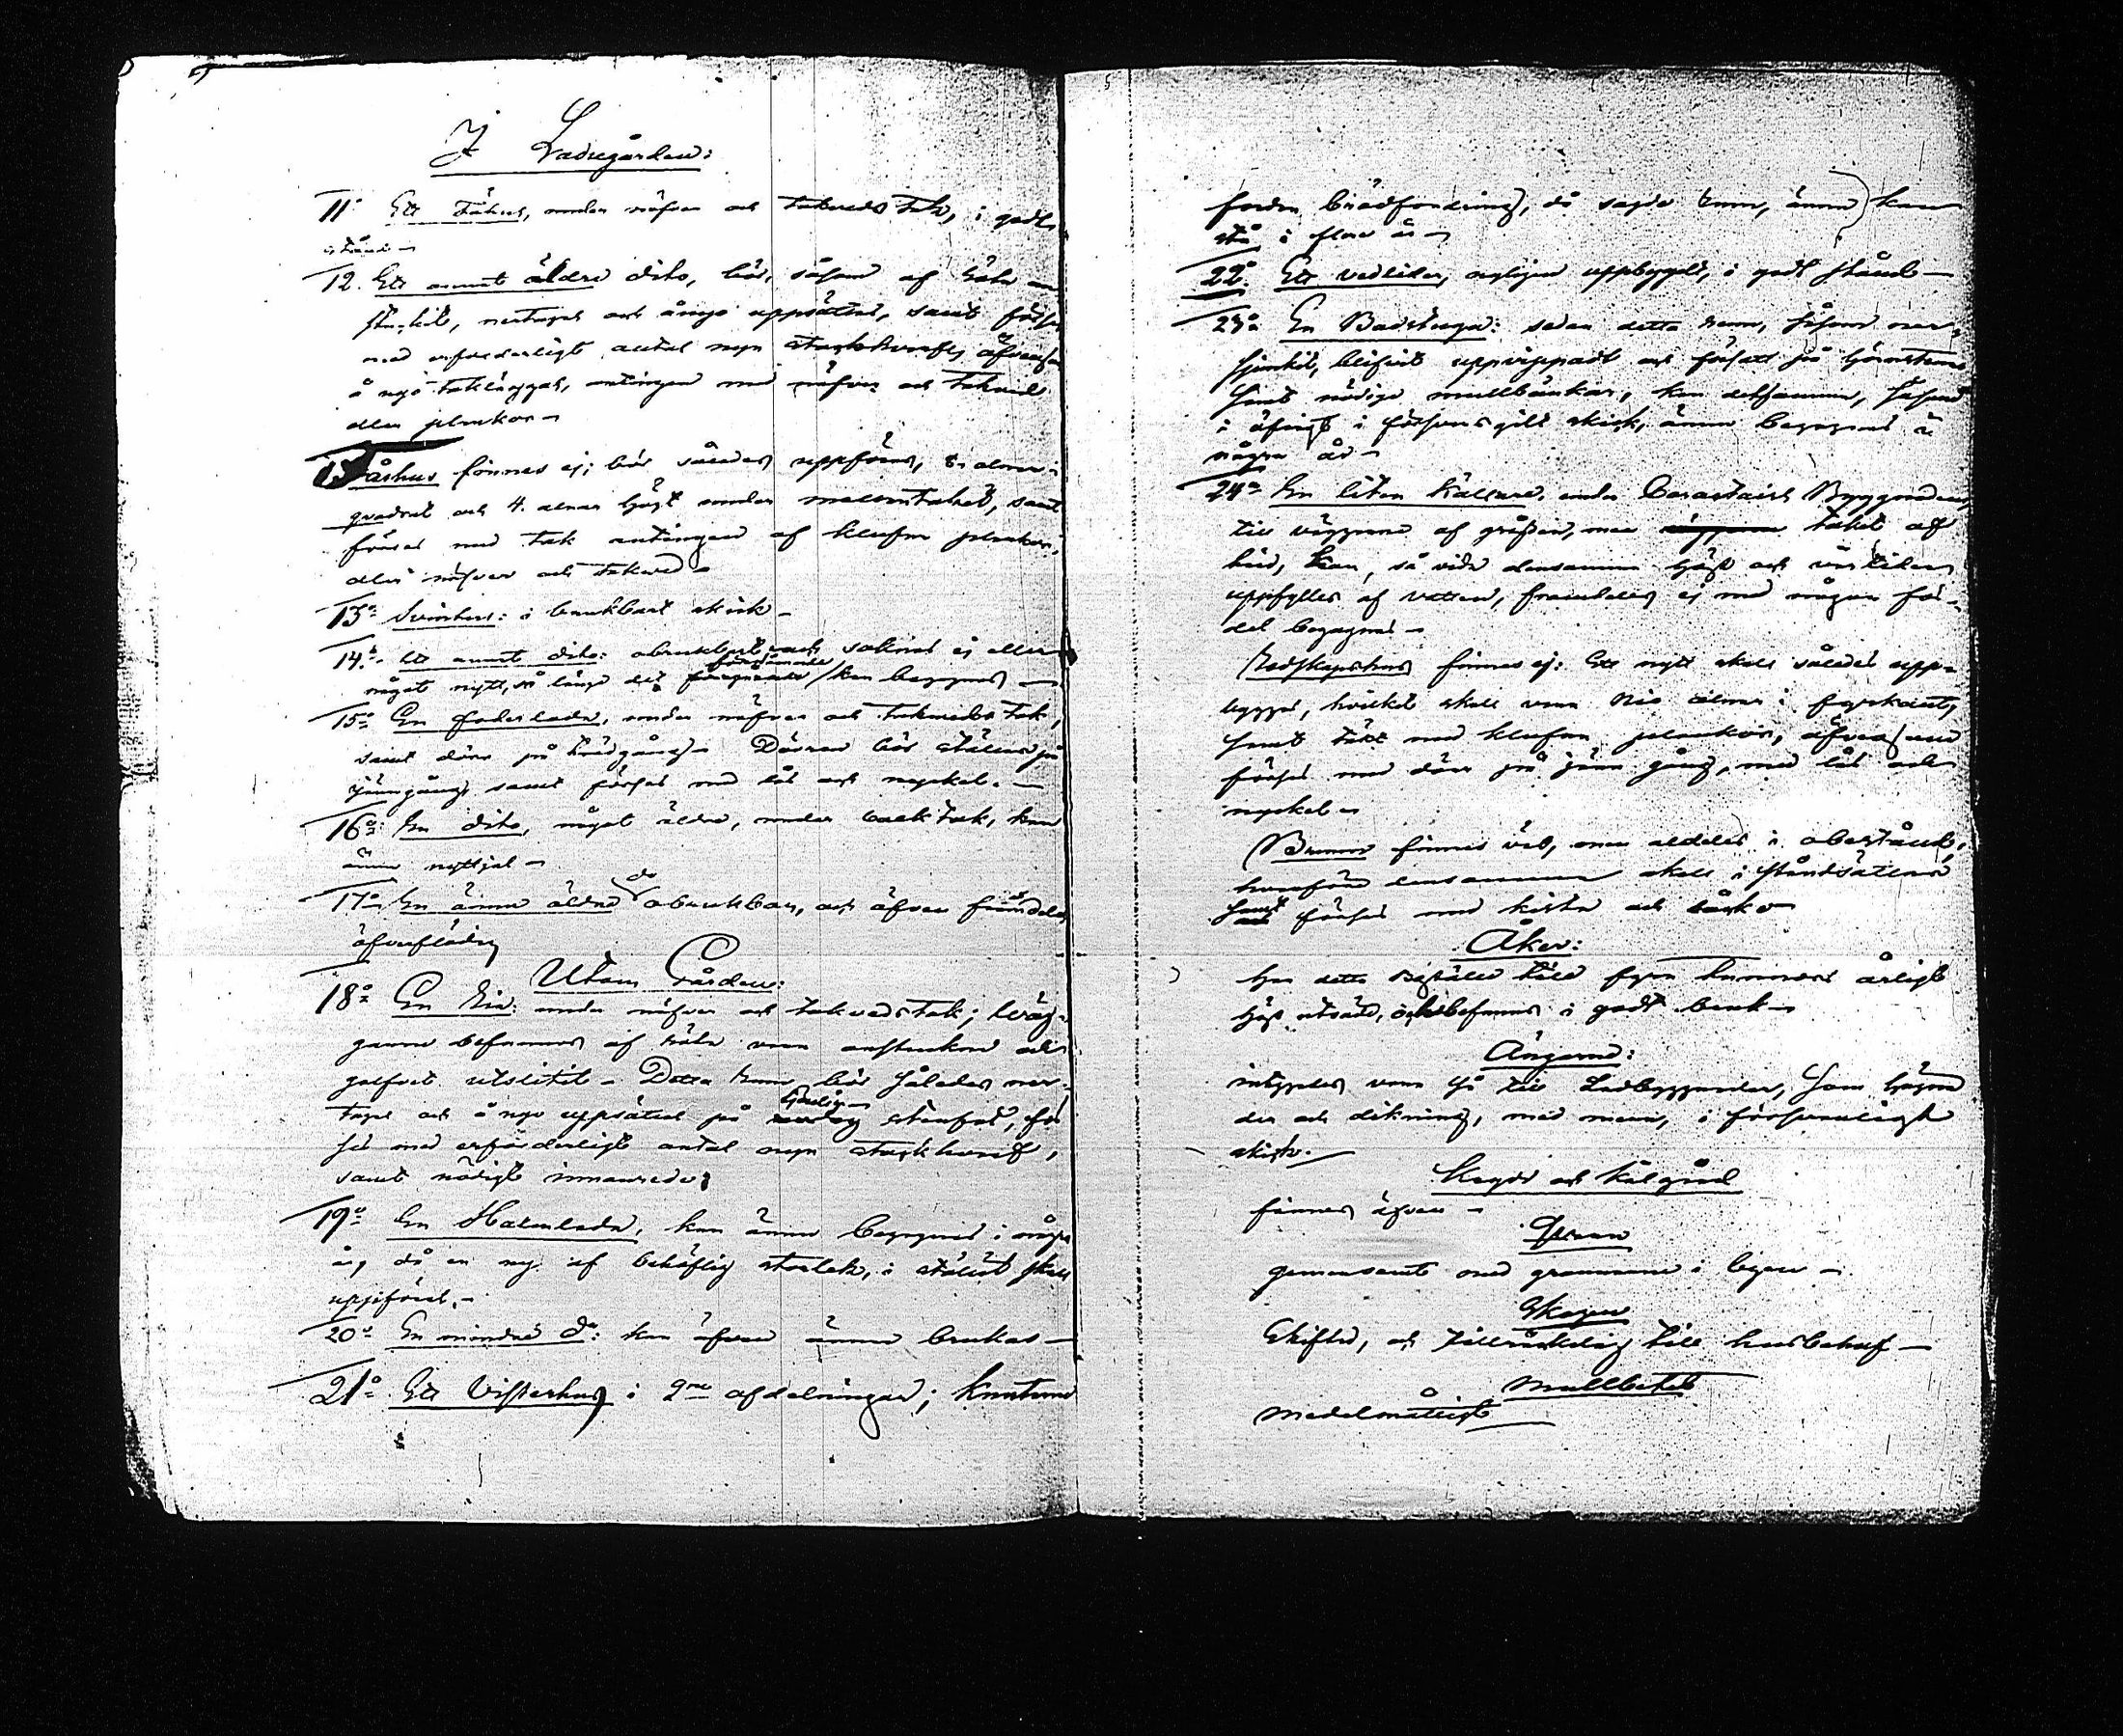 I Ladugården:
11o Ett Fähus, under näfver och takveds tak, i godt
stånd –
12. Ett annat äldre dito, bör, såsom af röta
stucket, nertagas och ånyo uppsättas, samt förses
med erforderligt antal nya stockhvarf, äfvensom
å nyo takläggas, antingen med näfver och takved
eller plankor –
Fårhus finnes ej; bör således uppföras, 8 alnar i
qvadrat och 4 alnar högt under mellantaket, samt
förses med tak antingen af klufna plankor,
eller näfver och takved –
13o Svinhus: i brukbart skick –
14o Ett annat dito: obrukbart och saknas ej eller
något nytt, så länge det förstnämde kan begagnas –
15o En foderlada, under näfver och takveds tak,
samt dörr på trädgång – Dörren bör ställas på
jerngång samt förses med lås och nyckel. –
16o En dito, något äldre, under balktak, kan
ännu nyttjas –
17o En ännu äldre do obrukbar, och äfven framdeles
öfverflödig
Utom Gården:
18o En Ria: under näfver och takveds tak; väg-
garne befunnos af röta vara anstuckne och
golfvet utslitit – Detta hus bör således ner-
tagas och å nyo uppsättas på stenfot, för-
ses med erforderligt antal nya stockhvarf,
samt nödigt innanrede.
19o En Halmlada, kan ännu begagnas i några
år, då en ny af behöflig storlek, i stället skall
uppföras. –
20o En mindre do: kan äfven ännu brukas –
21o Ett Visthus i 2ne afdelningar; knutarne
fordra brädfordring, då sagde hus, ännu kan
stå i flere år –
22o Ett vedlider, nyligen uppbygdt, i godt stånd –
23o En Badstuga: sedan detta hus, såsom ner-
sjunkit, blifvit uppvippadt och försatt på hörnstenar
samt nödiga mullbänkar, kan detsamma, såsom
i öfrigt i försvarsgilt skick, ännu begagnas i
några år –
24o En liten Källare, under Byggnaden
till väggarne af gråsten, men taket af
träd, kan, så vida densamma höst och vårtiden
uppfylles af vatten, framdeles ej med någon för-
del begagnas –
Redskapshus finnes ej: Ett nytt skall således upp-
byggas, hvilket skall vara nio alnar i fyrkant,
samt täckt med klufna plankor, äfvensom
förses med dörr på jern gång, med lås och
nyckel –
Brunn finnes väl, men alldeles i obestånd,
hvarföre densamma skall i ståndsättas
samt förses med kista och
Åker:
Hos detta Boställe till fyra tunnors årligt
höst utsäde, och befanns i godt bruk –
Ängarne:
voro så till Ladbyggnader, som hägna-
der och dikning, med mera, i försvarligt
skick. –
Kryd och Kålgård
finnes äfven –
Qvarn
gemensamt med grannarne i byen –
Skogen
Skiftad, och tillräcklig till husbehof –
Mullbetet
medelmåttigt –